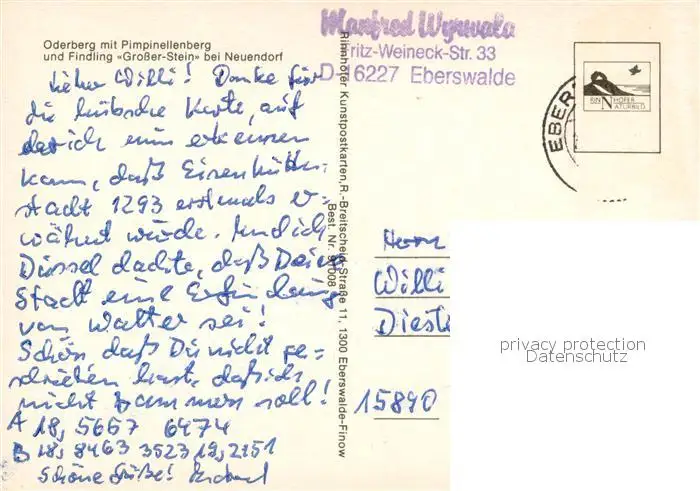 Oderberg mit Pimpinellenberg
und Findling «Großer-Stein» bei Neuendorf
Lieber Willi! Danke für
die hübsche Karte, auf
der ich nun erkennen
kann, daß Eisenhütten-
stadt 1293 erstmals er-
wähnt wurde. Und ich
Dussel dachte, daß Deine
Stadt eine Erfindung
von Walter sei!
Schön daß Du nicht ge=
schrieben hast, daß ich
nicht jammern soll!
A 18, 5667 6474
B 18, 8463 3523 19, 2151
Schöne Grüße!
Rinnhofer Kunstpostkarten, R.-Breitscheid-Straße 11, 1300 Eberswalde-Finow
Best. Nr. 91008
Manfred
Fritz-Weineck-Str. 33
D-16227 Eberswalde
EBER
EIN
NHOFER
NATURBILD
Herrn
Willi
Dieste
15890
privacy protection
Datenschutz